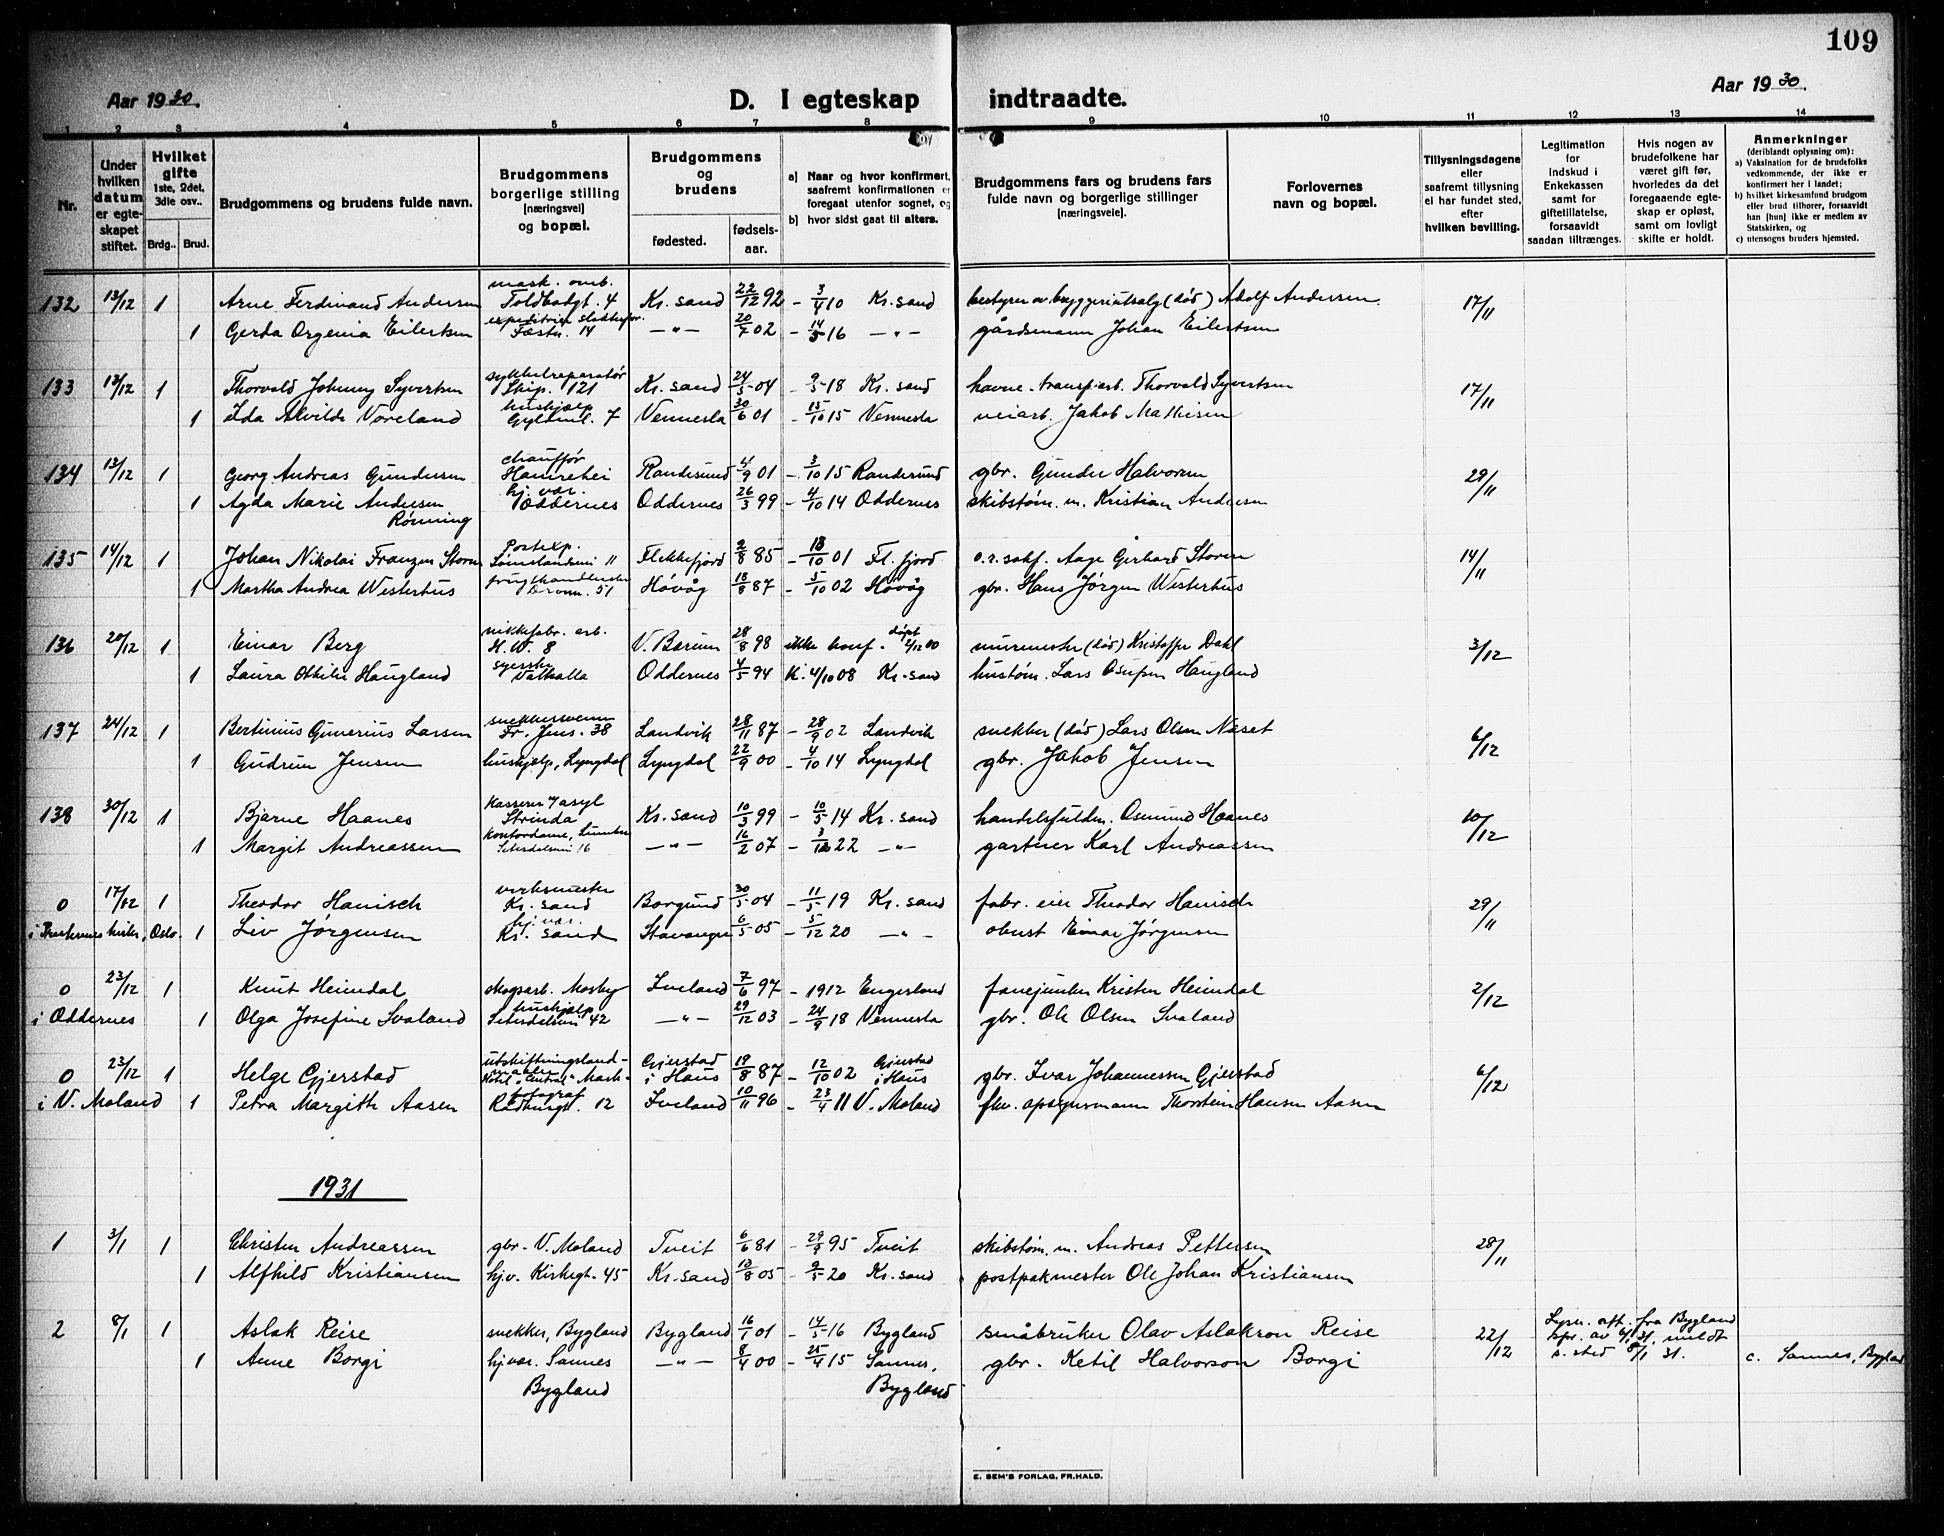 109
Aar 1930.
D. I egteskap indtraadte.
Aar 1930.
1 2 3 4 5 6 7 8 9 10 11 12 13 14
Nr.
Under hvilken datum er egteskapet stiftet.
Hvilket gifte 1ste, 2det, 3dle osv..
Brdg.. Brud.
Brudgommens og brudens fulde navn.
Brudgommens borgerlige stilling [næringsvei] og bopæl.
Brudgommens og brudens
fødested. fødselsaar.
a) Naar og hvor konfirmert, saafremt konfirmationen er foregaat utenfor sognet, og
b) hvor sidst gaat til alters.
Brudgommens fars og brudens fars fulde navn og borgerlige stillinger [næringsveie].
Forlovernes navn og bopæl.
Tillysningsdagene eller saafremt tillysning ei har fundet sted, efter hvilken bevilling.
Legitimation for indskud i Enkekassen samt for giftetillatelse, forsaavidt saadan tiltrænges.
Hvis nogen av brudefolkene har været gift før, hvorledes da det foregaaende egteskap er opløst, samt om lovligt skifte er holdt.
Anmerkninger (deriblandt oplysning om):
a) Vaksination for de brudefolks vedkommende, der ikke er konfirmert her i landet;
b) hvilket kirkesamfund brudgom eller brud tilhører, forsaavidt han [hun] ikke er medlem av Statskirken, og
c) utensogns bruders hjemsted.
132 13/12 1 Arne Ferdinand Andersen mask. omb. Toldbodgt. 4 Kr. sand 22/12 92 - 3/4 10 Kr. sand bestyrer av bryggeriutsalg (død) Adolf Andersen 17/11
1 Gerda Orgenia Eilertsen Fæstn. 14 —"— 20/7 02 - 14/5 16 —"— gårdsmann Johan Eilertsen
133 13/12 1 Thorvald Johnny Syvertsen sykkelreparatør Skip. 121 Kr. sand 24/5 04 - 9/5 18 Kr. sand havne-transp.arb. Thorvald Syvertsen 17/11
1 Ida Alvilde Vøreland hushjelp Gyldenl. 7 Vennesla 30/6 01 - 15/10 15 Vennesla veiarb. Jakob Mathisen
134 13/12 1 Georg Andreas Gundersen chauffør Hamrehei Randesund 4/9 01 - 3/10 15 Randesund gbr. Gunder Halvorsen 29/11
1 Agda Marie Andersen Rønning hj. vær. Oddernes Oddernes 26/3 99 - 4/10 14 Oddernes skibstøm. m. Kristian Andersen
135 14/12 1 Johan Nikolai Franzen Storm Postexp. 11 Flekkefjord 2/8 85 - 13/10 01 Fl. fjord o.r. sakf. Aage Gerhard Storm 14/11
1 Martha Andrea Westerhus frugthandlerske Dronn. 51 Høvåg 18/8 87 - 5/10 02 Høvåg gbr. Hans Jørgen Westerhus
136 20/12 1 Einar Berg nikkelabr. arb. H. W. 8 V. Bærum 28/8 98 ikke konf. døpt 2/12 00 murmester (død) Kristoffer Dahl 3/12
1 Laura Othilie Haugland syerske Valhalla Oddernes 4/5 94 K. 4/10 08 Kr. sand hustøm. Lars Osufsen Haugland
137 24/12 1 Bertinius Gunerius Larsen snekkersvenn Fr. Jens. 38 Landvik 28/11 87 - 28/9 02 Landvik snekker (død) Lars Olsen Næset 6/12
1 Gudrun Jensen hushjelp, Lyngdal Lyngdal 22/9 00 - 4/10 14 Lyngdal gbr. Jakob Jensen
138 30/12 1 Bjarne Haanes kasserer v asyl Strinda Kr. sand 10/3 99 - 10/5 14 Kr. sand handelsfuldm. Osmund Haanes 10/12
1 Margit Andreassen kontordame, Setesdalsvei 16 —"— 16/2 07 - 3/12 22 —"— gartner Karl Andreassen
0 17/12 1 Theodor Hanisch verksmester Kr. sand Borgund 30/5 04 - 11/5 19 Kr. sand fabr. eier Theodor Hanisch 29/11
i kirke, Oslo. 1 Liv Jørgensen hj. vær. Kr. sand Stavanger 6/5 05 - 5/12 20 —"— oberst Einar Jørgensen
0 23/12 1 Knut Heimdal skogsarb. Mosby Iveland 7/6 97 - 1912 Engesland fanejunker Kristen Heimdal 2/12
i Oddernes 1 Olga Josefine Svaland hushjelp Setesdalsvei 42 —"— 29/12 03 - 24/9 18 Vennesla gbr. Ole Olsen Svaland
0 23/12 1 Helge Gjerstad utskiftningslandmåler, Hotel "Central" Mark. Gjerstad i Haus 19/8 87 - 12/10 02 Gjerstad i Haus gbr. Ivar Johannessen Gjerstad 6/12
i V. Moland 1 Petra Margith Aasen fotograf Rådhusgt. 12 Iveland 10/11 96 - 23/4 11 V. Moland fhv. opsynsmann Thorstein Hansen Aasen
1931
1 3/1 1 Christen Andreassen gbr. V. Moland Tveit 6/6 81 - 29/9 95 Tveit skibstøm. m. Andreas Pettersen 28/11
1 Alfhild Kristiansen hjv. Kirkegt. 45 Kr. sand 13/8 05 - 9/5 20 Kr. sand postpakmester Ole Johan Kristiansen
2 8/1 1 Aslak Reise snekker, Bygland Bygland 16/1 01 - 14/5 16 Bygland småbruker Olav Aslakson Reise 22/12 Lysn. att. fra Bygland spr. av 6/1 31, meldt s. sted 8/1 31.
1 Anne Borgi hj vær. Sannes Bygland —"— 8/4 00 - 25/4 15 Sannes, Bygland gbr. Ketil Halvorson Borgi c. Sannes, Bygland
E. SEM'S FORLAG, FR.HALD.